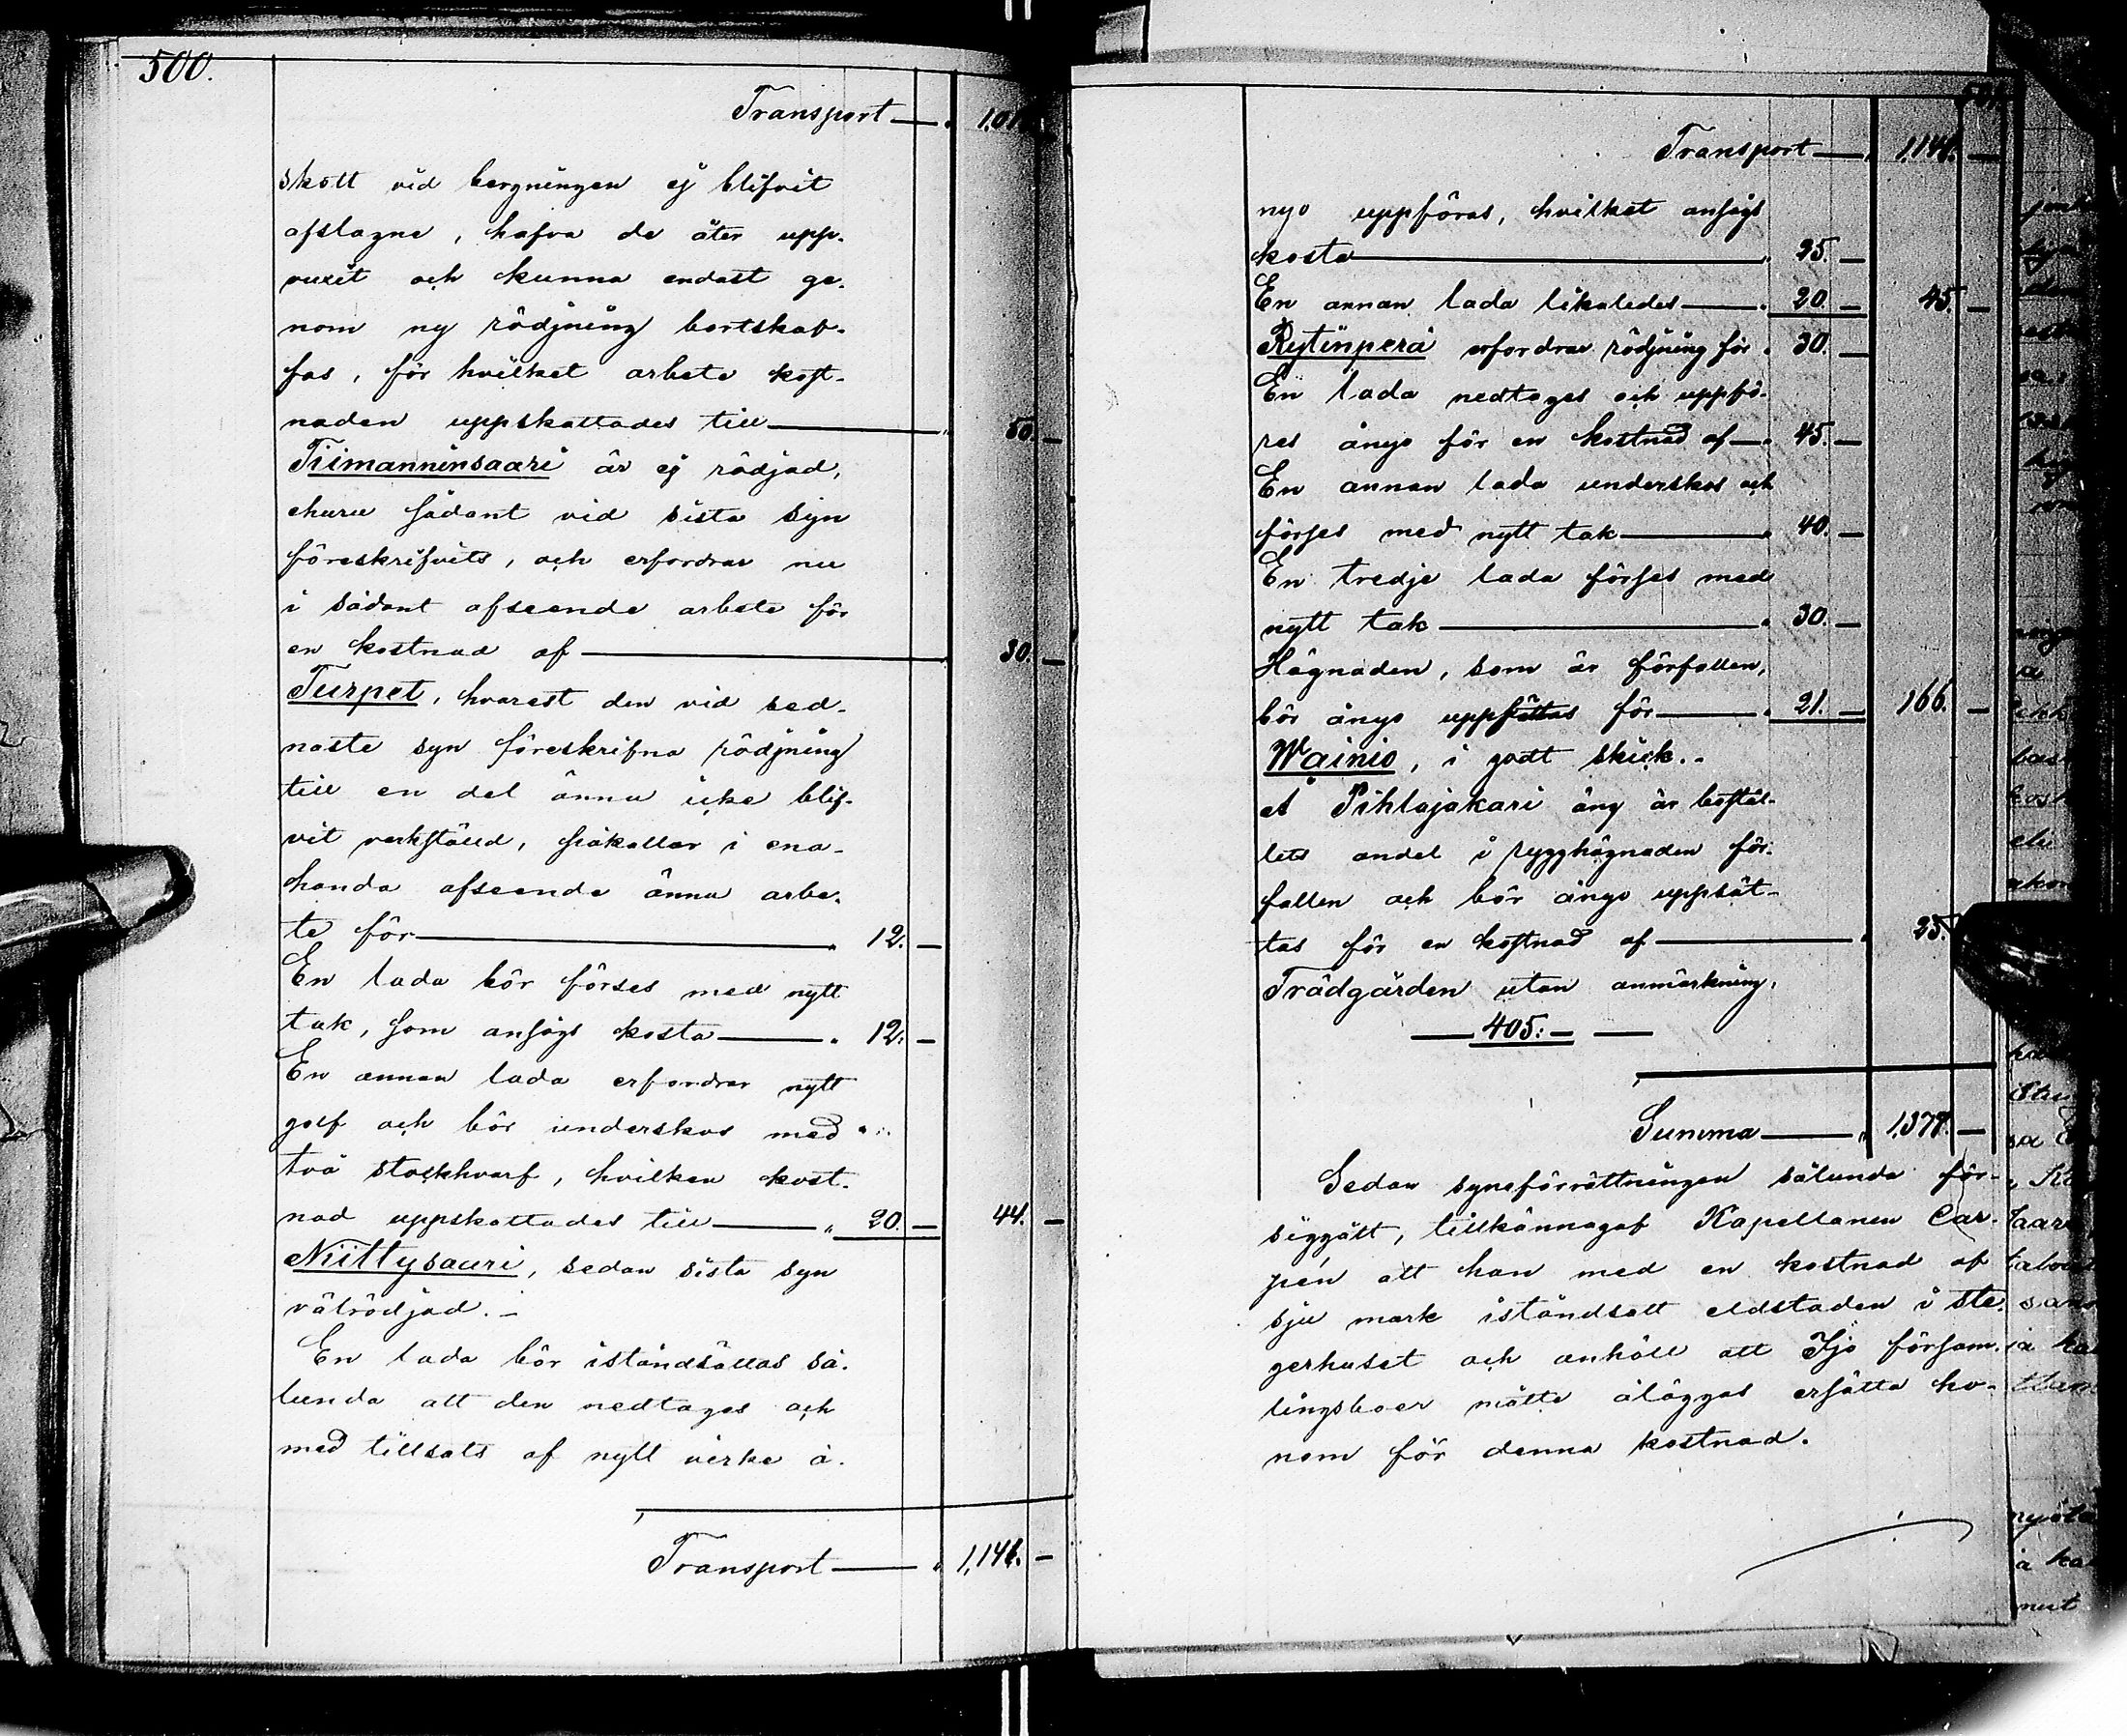 500.
Transport — "
skott vid bergningen ej blifvit
afslagne, hafva de åter upp-
vuxit och kunna endast ge-
nom ny rödjning bortskaf-
fas, för hvilket arbete kost-
naden uppskattades till — " 50. —
Tiimanninsaari är ej rödjad,
ehuru sådant vid sista syn
föreskrifvits, och erfordrar nu
i sådant afseende arbete för
en kostnad af — 30. —
Turpet, hvarest den vid sed-
naste syn föreskrifna rödjning
till en del ännu icke blif-
vit verkställd, påkallar i ena-
handa afseende ännu arbe-
te för — " 12. —
En lada bör förses med nytt
tak, som ansågs kosta — " 12. —
En annan lada erfordrar nytt
golf och bör underskos med
två stockhvarf, hvilken kost-
nad uppskattades till — " 20. — 44. —
Niittysaari, sedan sista syn
välrödjad. —
En lada bör iståndsättas så-
lunda att den nedtages och
med tillsats af nytt virke å-
Transport — " 1,141. —
Transport — 1,141. —
nyo uppföras, hvilket ansågs
kosta — " 25. —
En annan lada likaledes — " 20. — 45. —
Rytinperä erfordrar rödjning för " 30. —
En lada nedtages och uppfö-
res ånyo för en kostnad af — " 45. —
En annan lada underskos och
förses med nytt tak — " 40. —
En tredje lada förses med
nytt tak — " 30. —
Hägnaden, som är förfallen,
bör ånyo uppsättas för — " 21. — 166. —
Wainio, i godt skick. -
Å Pihlajakari äng är bostäl-
lets andel i rygghägnaden för-
fallen och bör ånyo uppsät-
tas för en kostnad af — " 25.
Trädgården utan anmärkning.
— 405: — —
Summa — " 1,377. —
Sedan syneförrättningen sålunda för-
siggått, tillkännagaf Kapellanen Car-
pén att han med en kostnad af
sju mark iståndsatt eldstaden i ste-
gerhuset och anhöll att Ijo försam-
lingsboer måtte åläggas ersätta ho-
nom för denna kostnad.